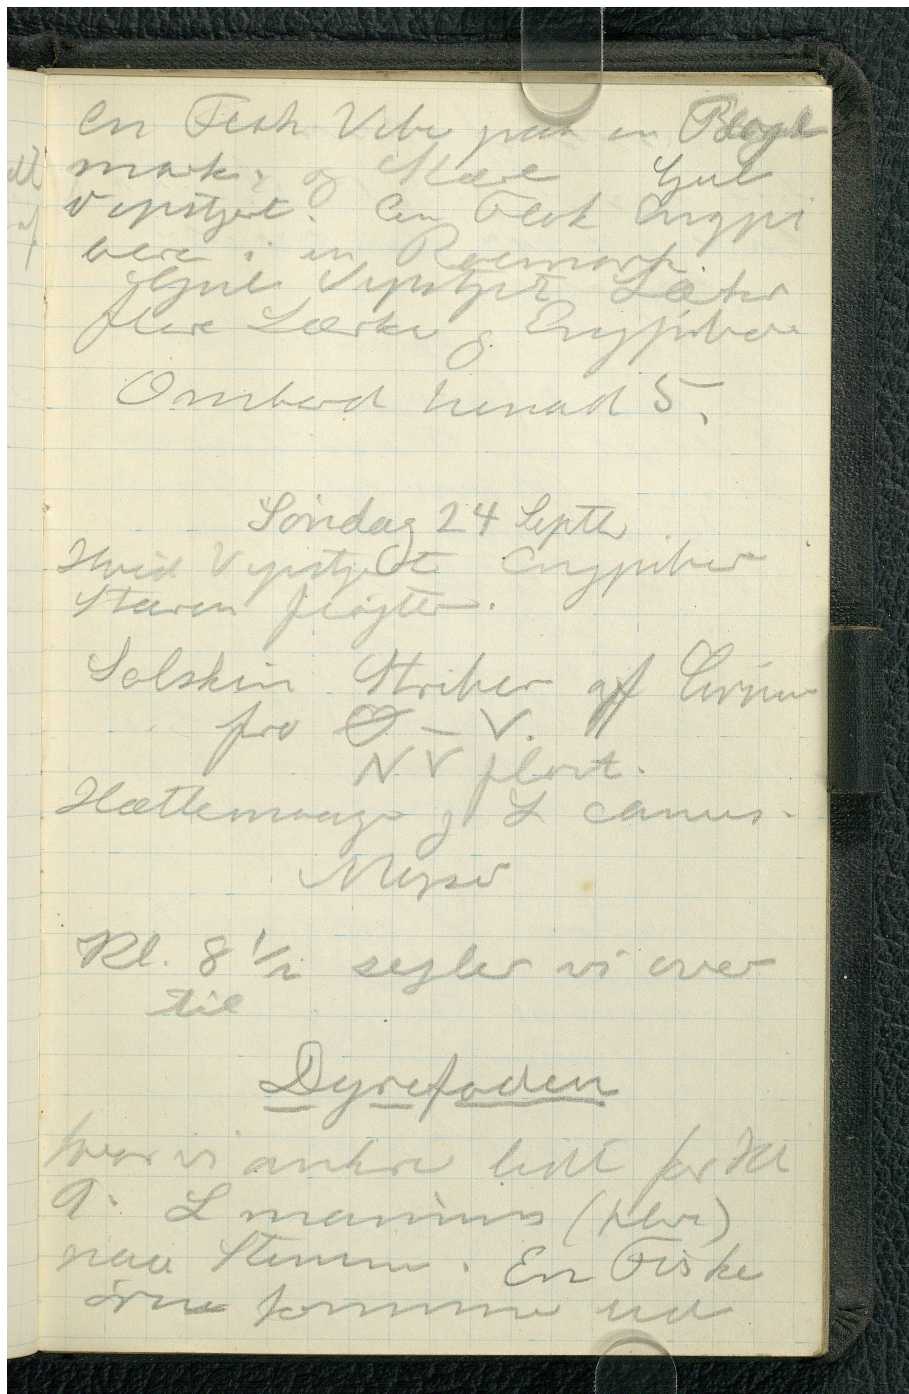 En Flok Viber paa en Bygk
mark, og Stære Gul
Vipstjert. En Flok Engpi
bere i en Roemark
Gule Vipstjert Lærker
flere Lærker og Engpibere
Ombord henad 5.
Söndag 24 Septb
Hvid Vipstjert Engpiber
Stæren fløjter.
Solskin Striber af Cirrus
fra Ø – V.
NV flovt.
Hættemaage og L canus.
Mejser
Kl. 8 1/2 sejler vi over
til
Dyrefoden
hvor vi ankre lidt før Kl
9. L marinus (flere)
paa Stenene. En Fiske
örne kommer ud